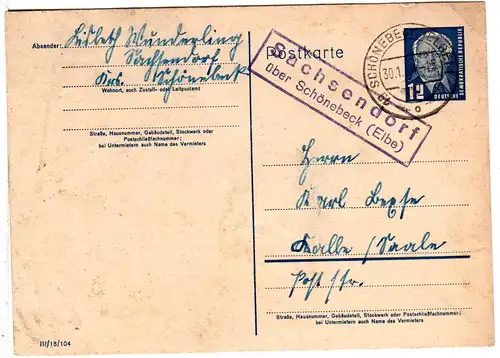 Absender: Lisbeth Wunderling
Sachsendorf
Krs. Schönebeck
Wohnort, auch Zustell- oder Leitpostamt
Straße, Hausnummer, Gebäudeteil, Stockwerk oder
Postschließfachnummer;
bei Untermietern auch Name des Vermieters
III/18/104
Postkarte
Sachsendorf
über Schönebeck (Elbe)
SCHÖNEBECK
30.1.
DEUTSCHE
DEMOKRATISCHE REPUBLIK
12
Herrn
Karl
Halle / Saale
Poststr.
Straße, Hausnummer, Gebäudeteil, Stockwerk oder Postschließfachnummer;
bei Untermietern auch Name des Vermieters